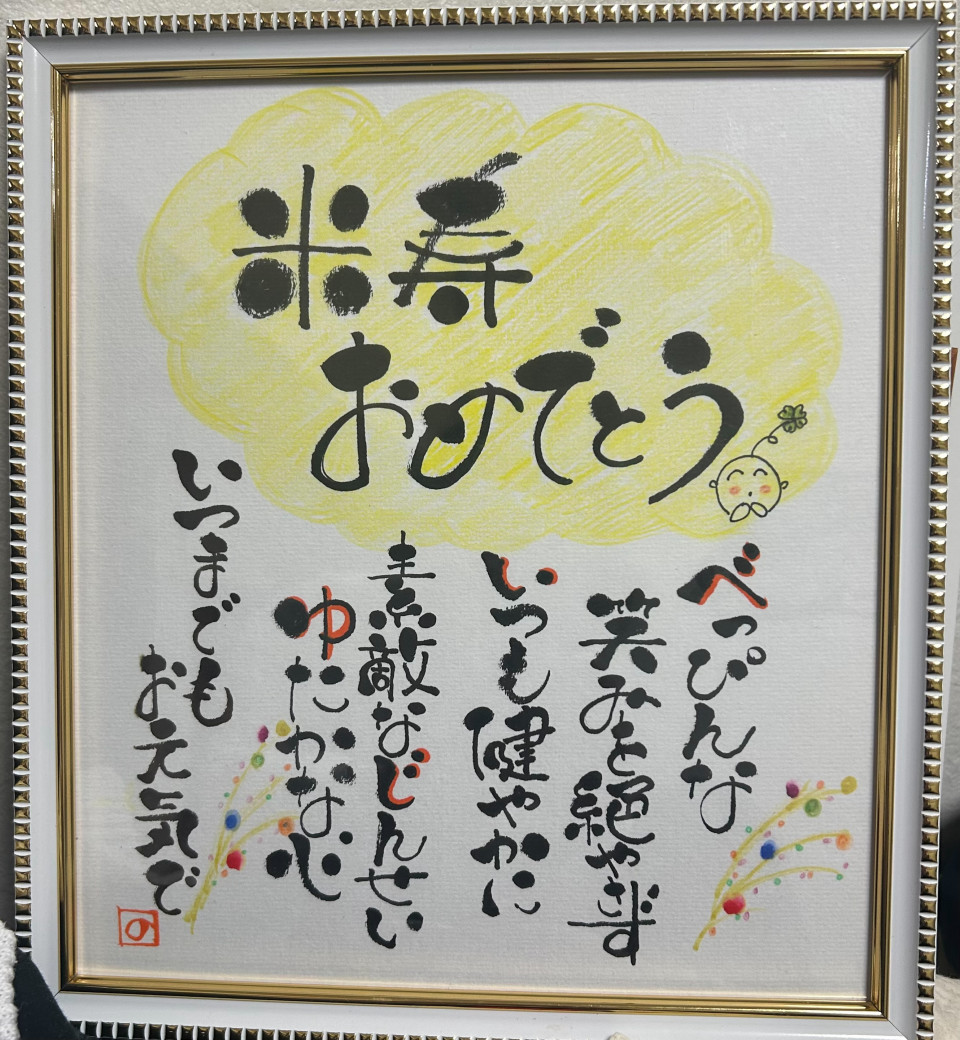 米寿
おめでとう
べっぴんな
笑みを絶やさず
いつも健やかに
素敵なじんせい
ゆたかな心
いつまでも
お元気で
の